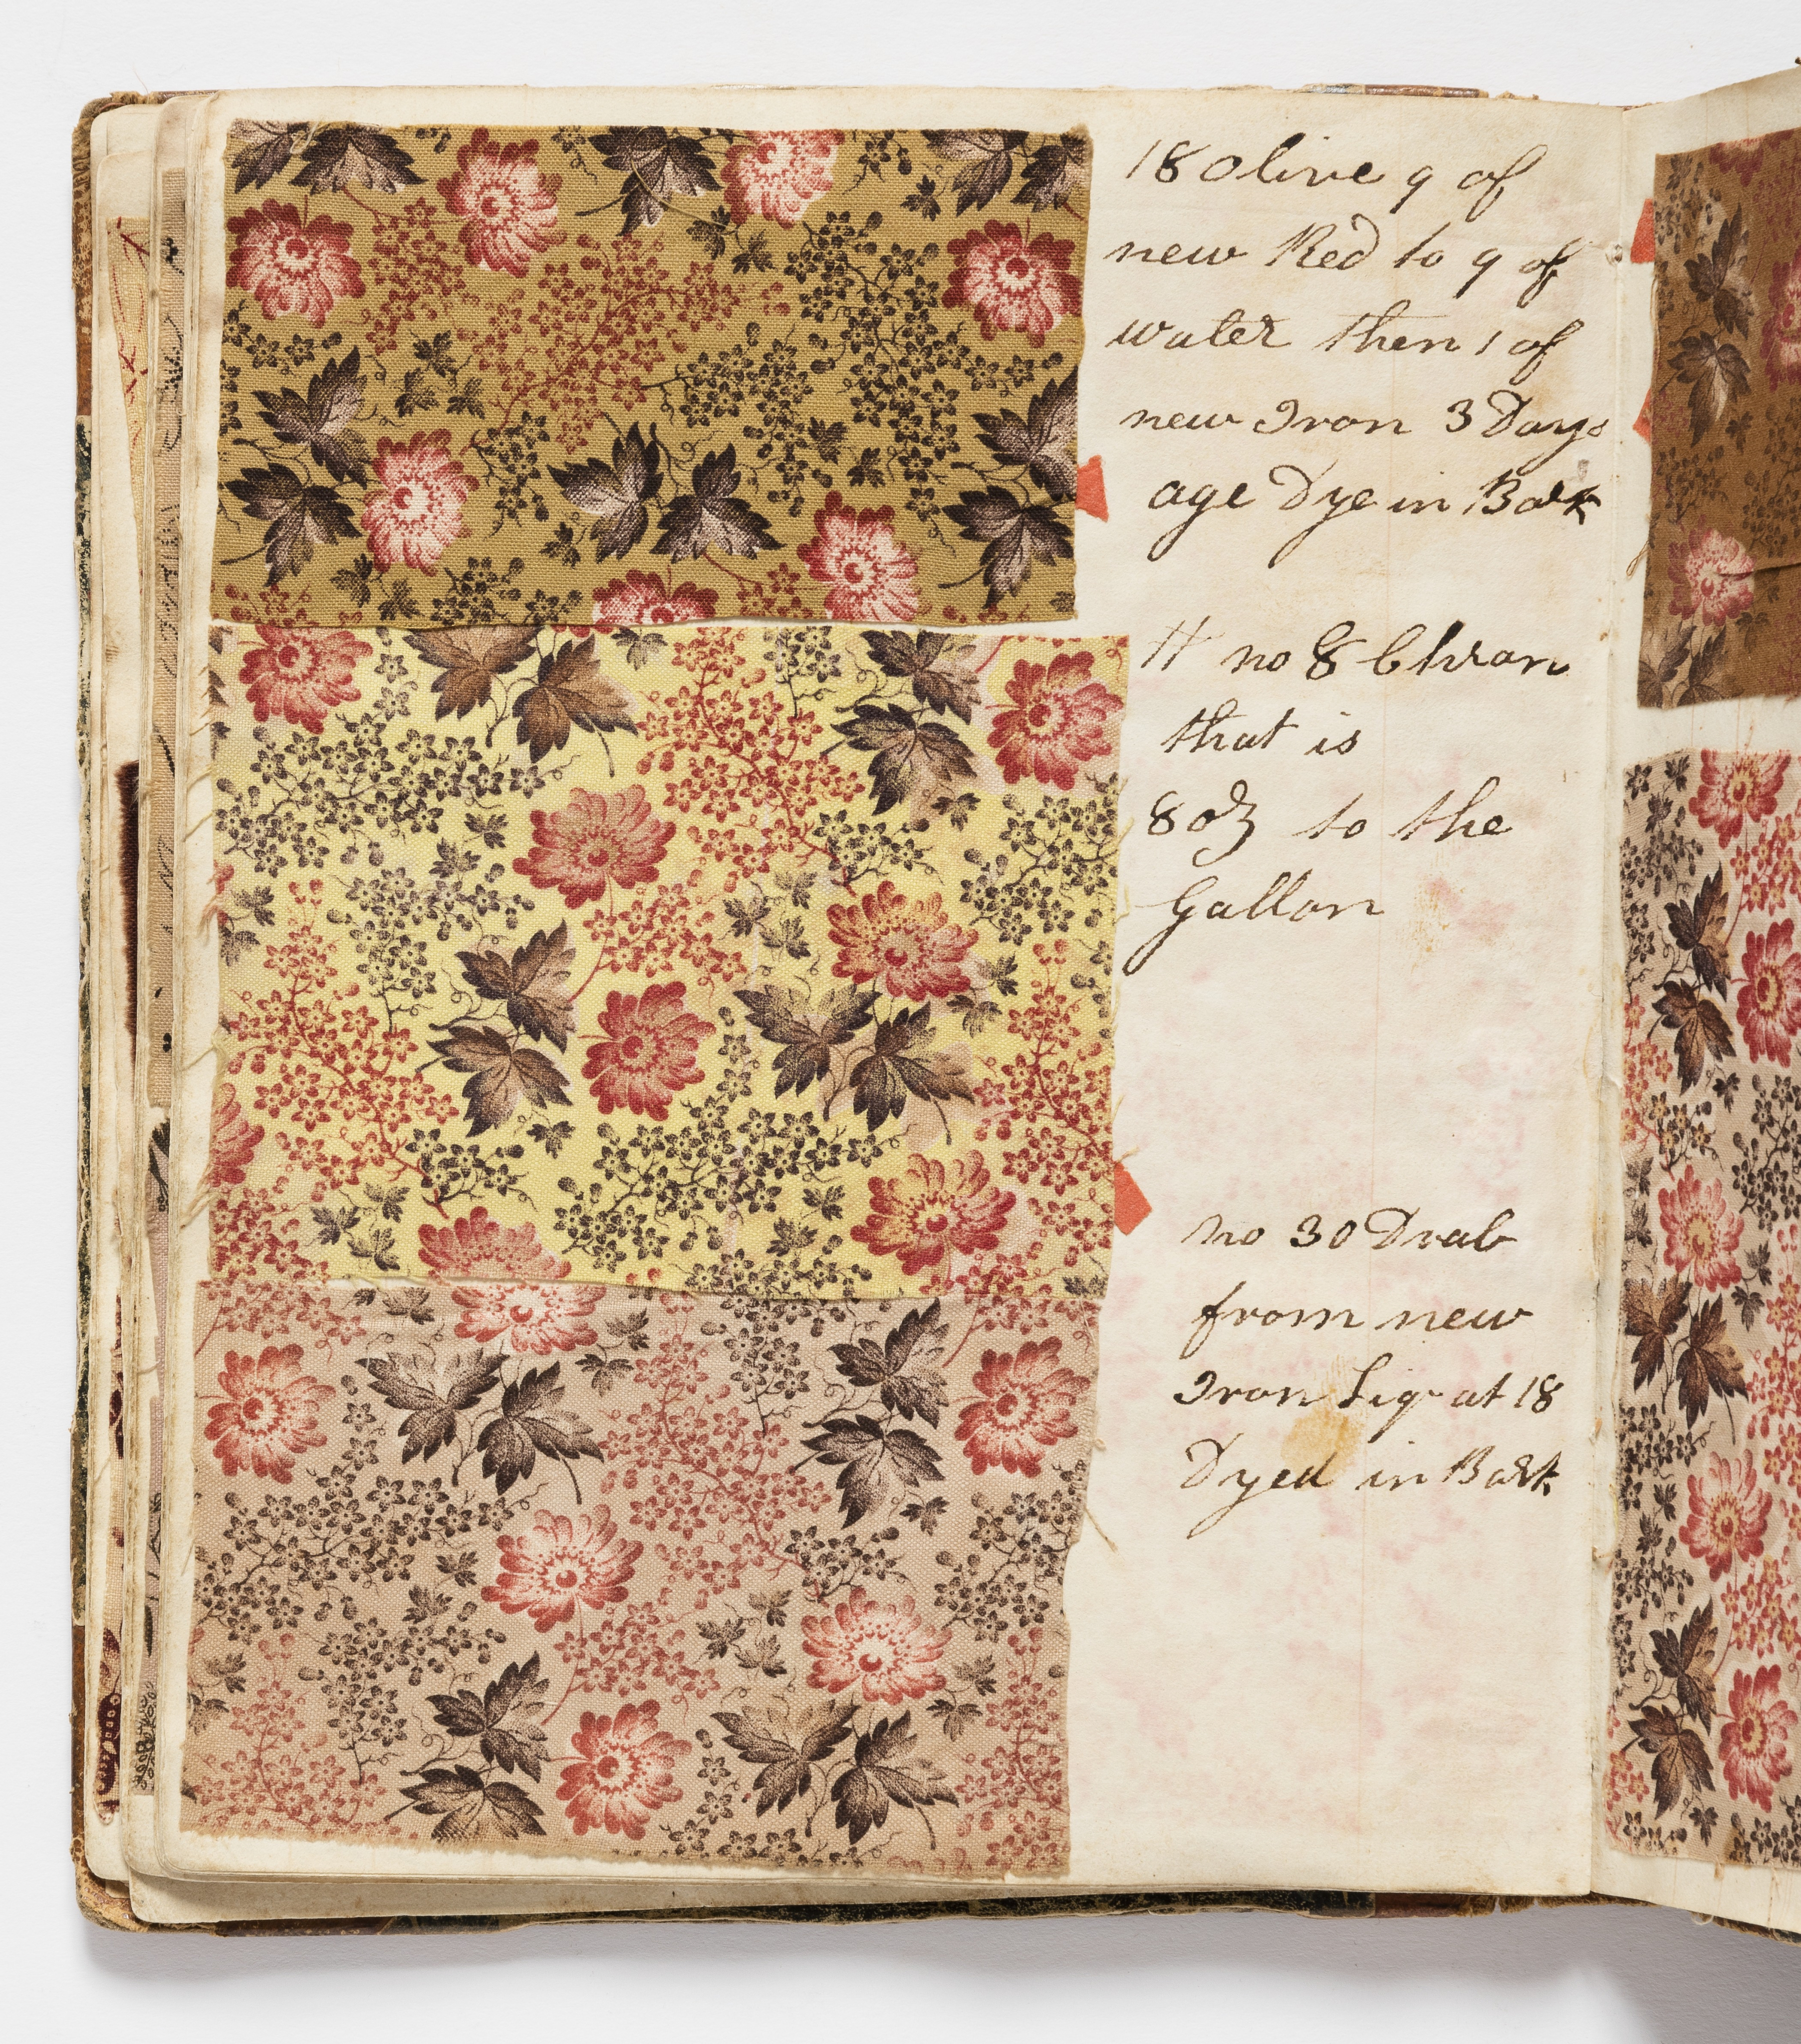 18 Olive 9 of
new Red to 9 of
water then 1 of
new Iron 3 Days
age Dye in Bark
no 8 Chrom
that is
8 oz to the
Gallon
no 30 Drab
from new
Iron Liqr at 18
Dyed in Bark